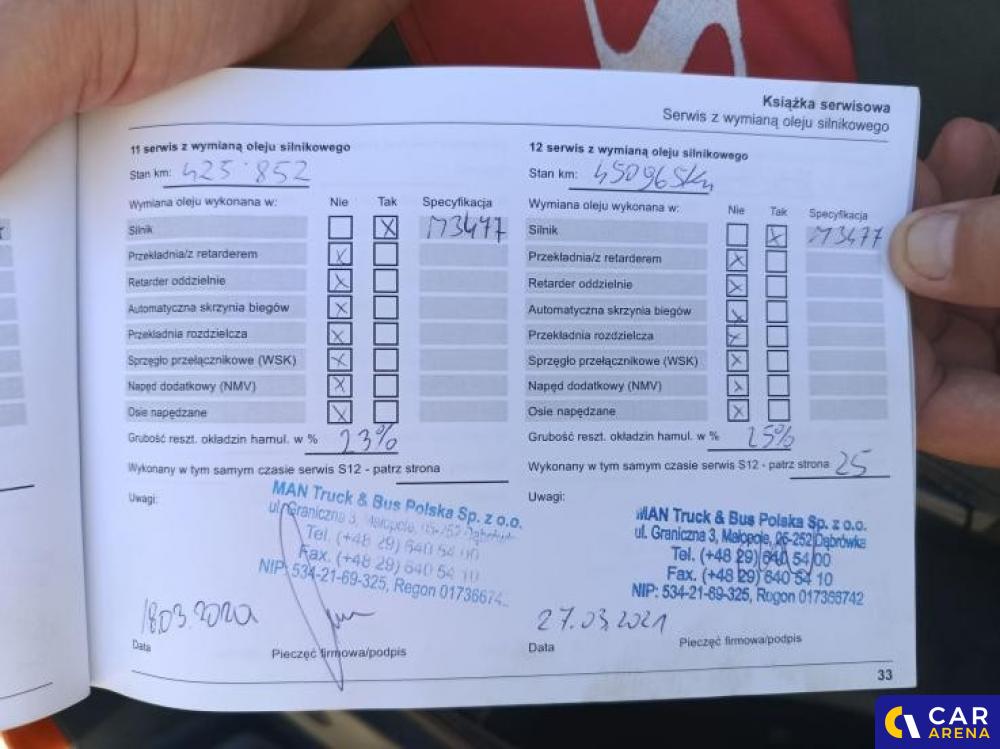 Książka serwisowa
Serwis z wymianą oleju silnikowego
11 serwis z wymianą oleju silnikowego
Stan km: 425 852
Wymiana oleju wykonana w: Nie Tak Specyfikacja
Silnik X M3477
Przekładnia/z retarderem X
Retarder oddzielnie X
Automatyczna skrzynia biegów X
Przekładnia rozdzielcza X
Sprzęgło przełącznikowe (WSK) X
Napęd dodatkowy (NMV) X
Osie napędzane X
Grubość reszt. okładzin hamul. w % 23%
Wykonany w tym samym czasie serwis S12 - patrz strona
Uwagi:
MAN Truck & Bus Polska Sp. z o.o.
ul. Graniczna 3, Małopole, 05-252 Dąbrówka
Tel. (+48 29) 640 54 00
Fax. (+48 29) 640 54 10
NIP: 534-21-69-325, Regon 01736674
18.03.2020
Data
Pieczęć firmowa/podpis
12 serwis z wymianą oleju silnikowego
Stan km: 450965km
Wymiana oleju wykonana w: Nie Tak Specyfikacja
Silnik X M3477
Przekładnia/z retarderem X
Retarder oddzielnie X
Automatyczna skrzynia biegów X
Przekładnia rozdzielcza X
Sprzęgło przełącznikowe (WSK) X
Napęd dodatkowy (NMV) X
Osie napędzane X
Grubość reszt. okładzin hamul. w % 25%
Wykonany w tym samym czasie serwis S12 - patrz strona 25
Uwagi:
MAN Truck & Bus Polska Sp. z o.o.
ul. Graniczna 3, Małopole, 05-252 Dąbrówka
Tel. (+48 29) 640 54 00
Fax. (+48 29) 640 54 10
NIP: 534-21-69-325, Regon 017366742
27.03.2021
Data
Pieczęć firmowa/podpis
33
CAR
ARENA